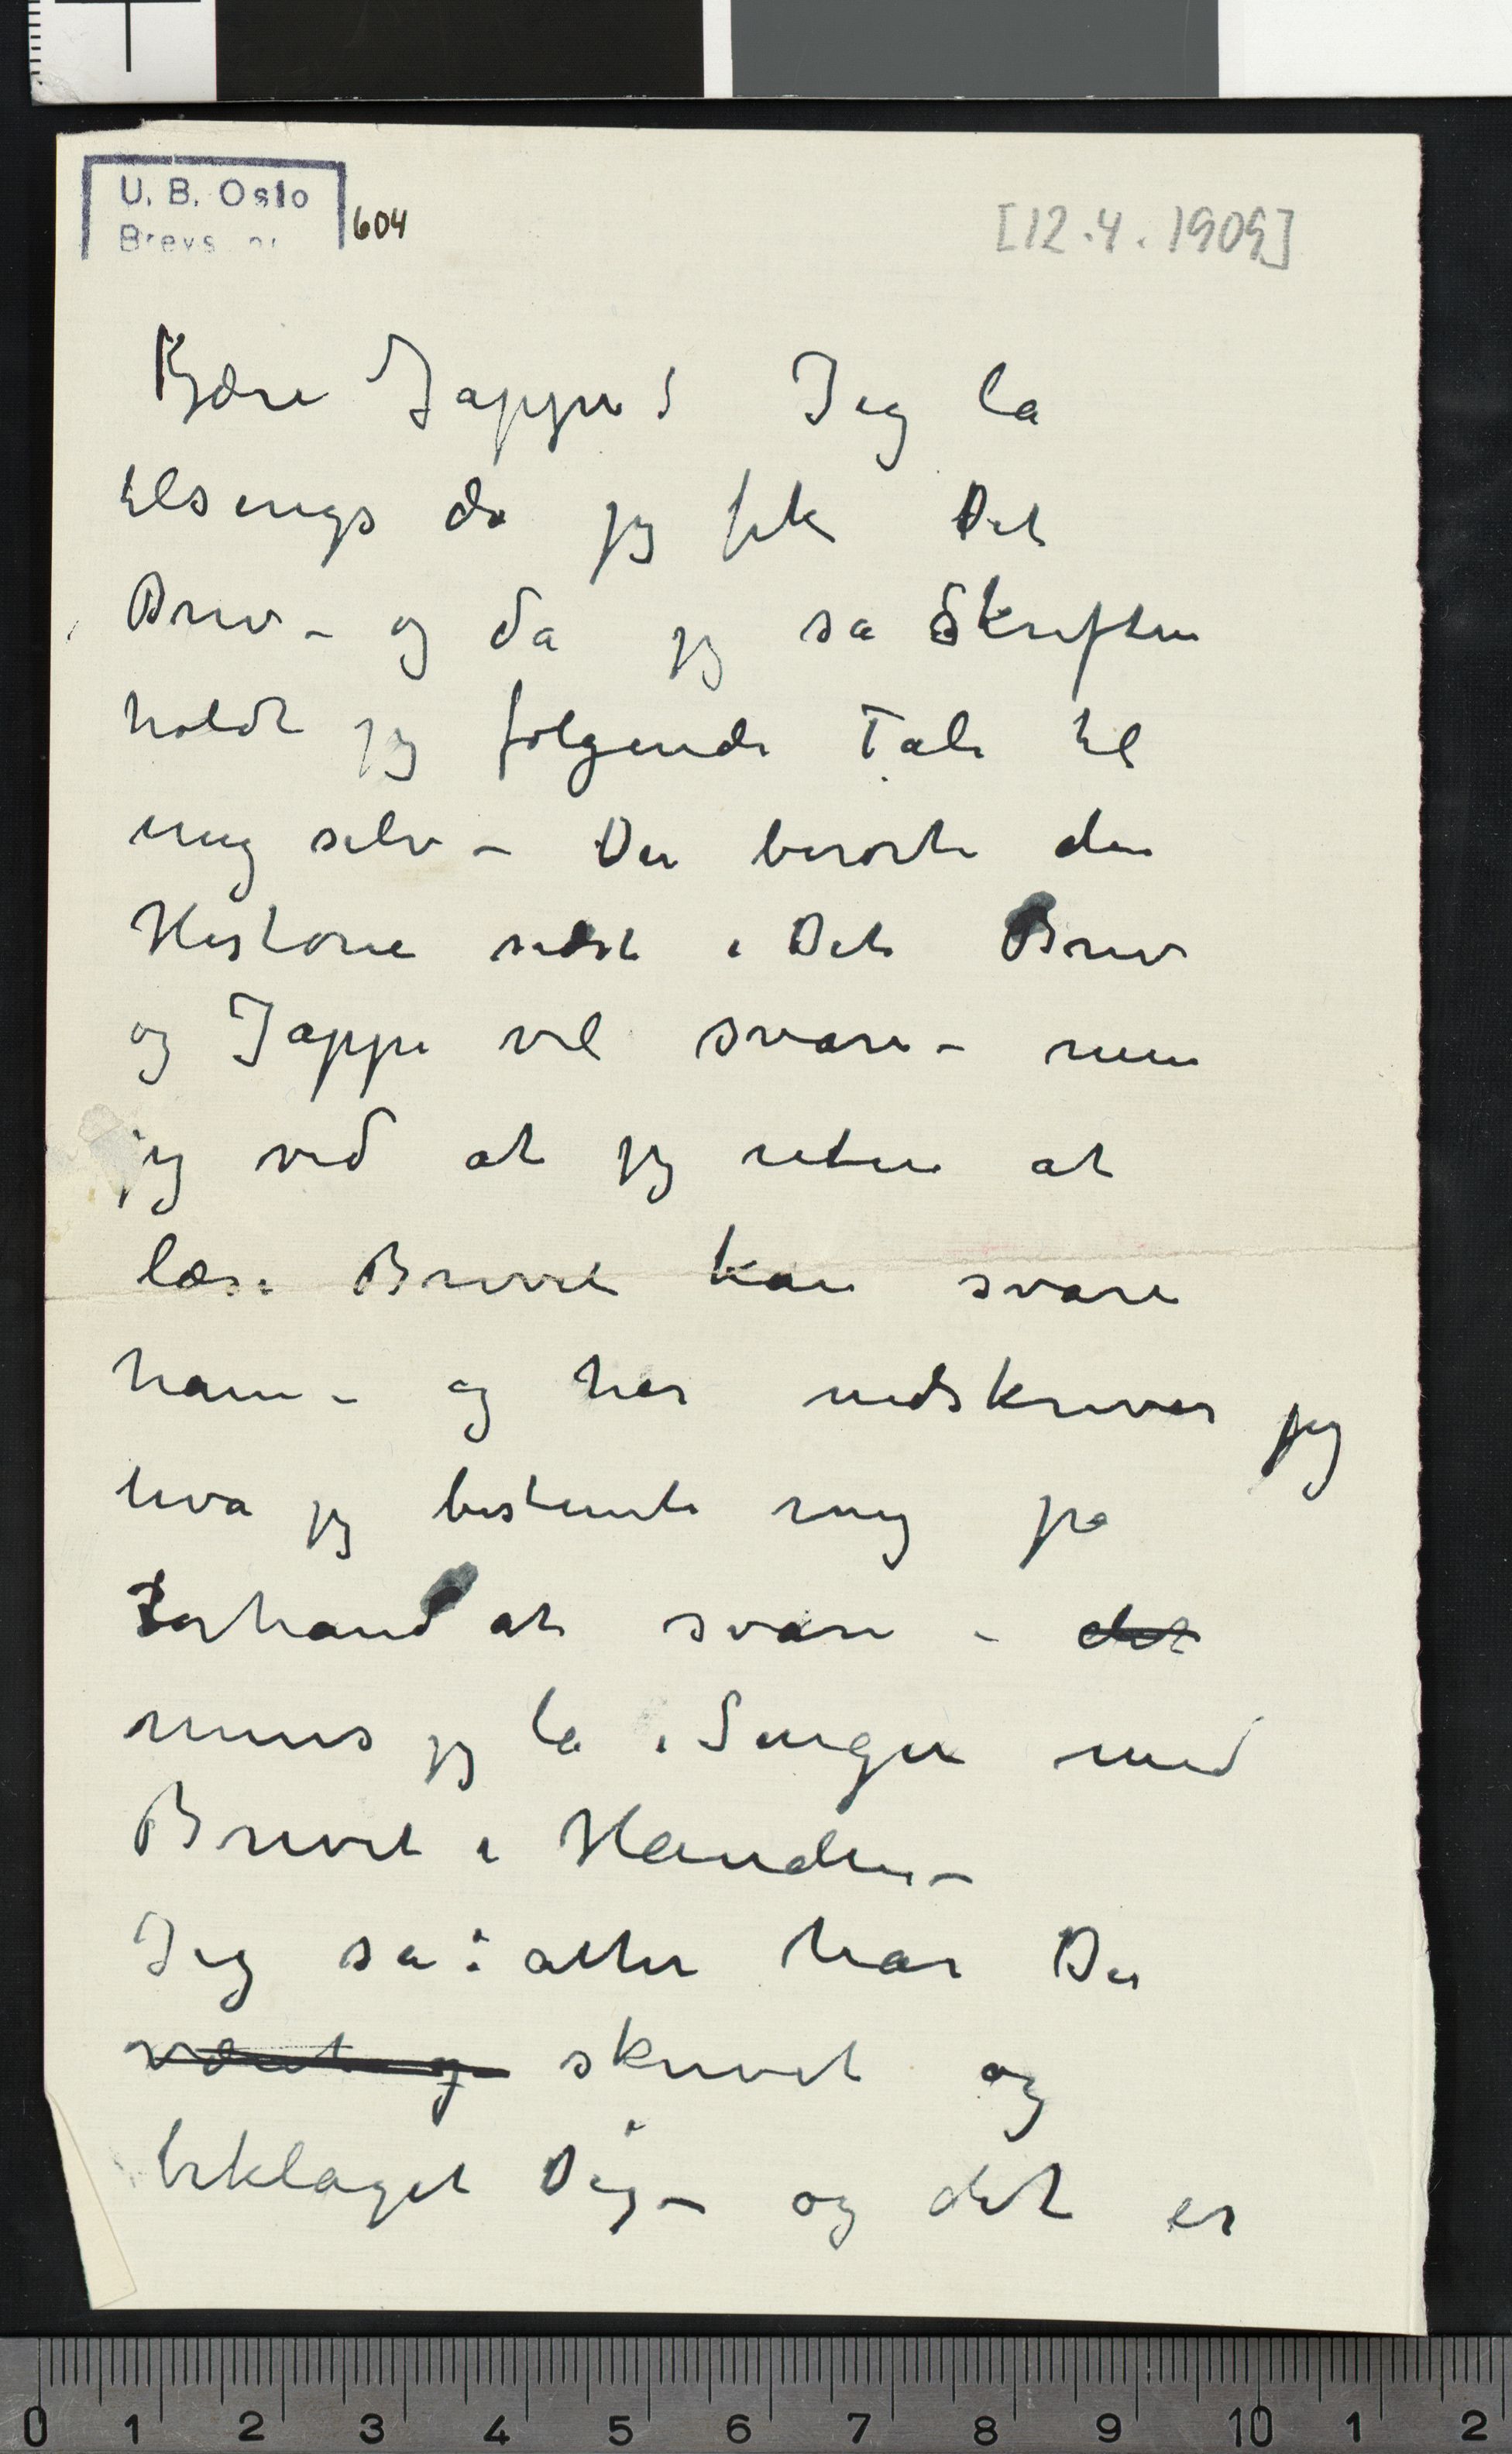 U. B. Oslo
Brevs. nr. 604
[12.4.1909]
Kjære Jappe! Jeg la
tilsengs da jeg fik Dit
Brev – og da jeg sa Skriften
holdt jeg følgende Tale til
mig selv – Du berørte den
Historie sidst i Dit Brev
og Jappe vil svare – men
jeg ved at jeg uden at
læse Brevet kan svare
ham – og her nedskriver jeg
hva jeg bestemte mig pa
Forhand at svare – det
mens jeg la i Sengen med
Brevet i Handen –
Jeg sa: atter har Du
skrevet og
beklaget Dig – og det er
0 1 2 3 4 5 6 7 8 9 10 1 2